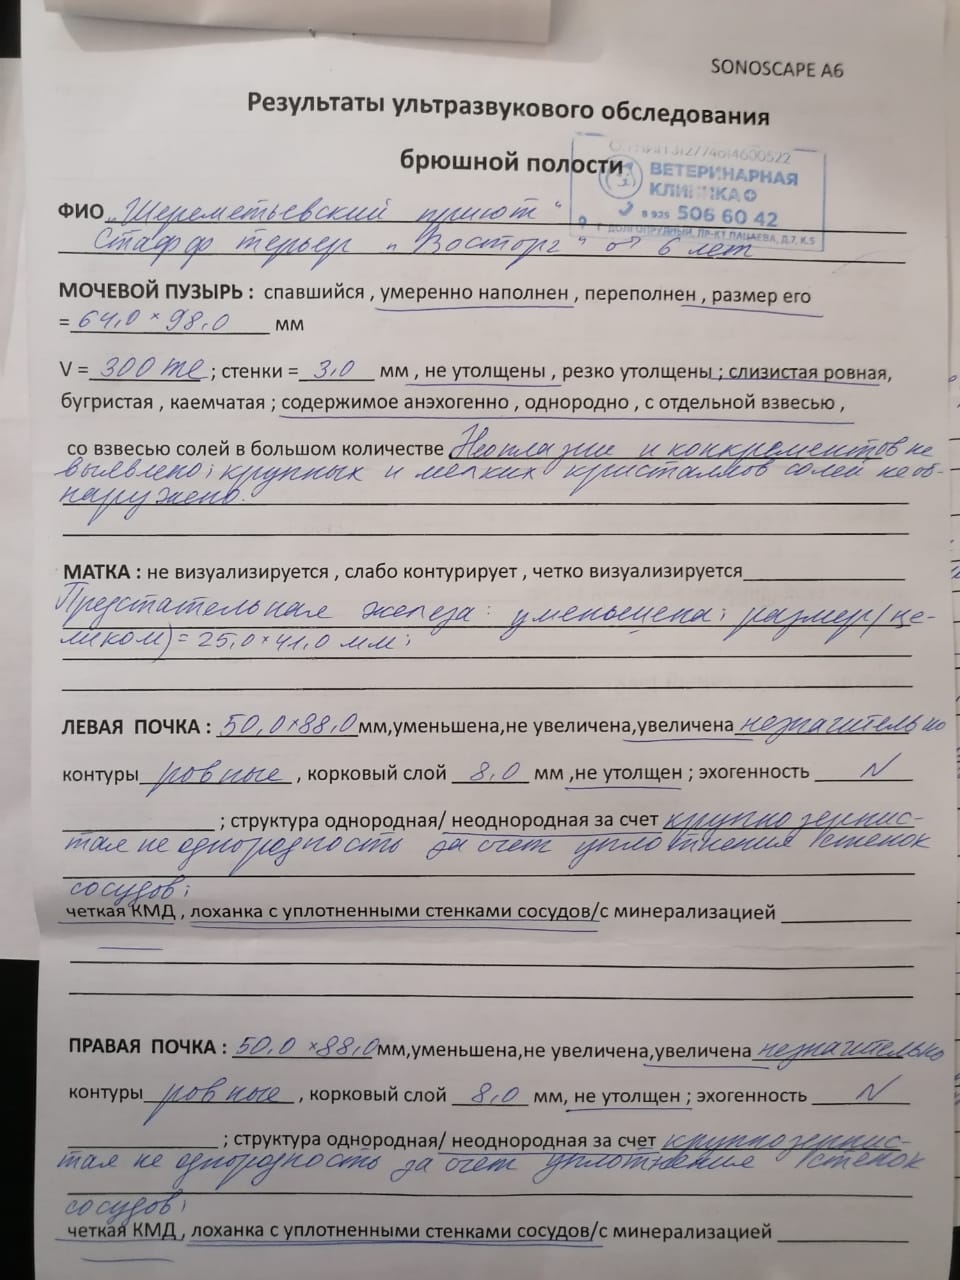 SONOSCAPE A6
Результаты ультразвукового обследования
брюшной полости
312774614600522
ВЕТЕРИНАРНАЯ
КЛИНИКА
8 925 506 60 42
Г. ДОЛГОПРУДНЫЙ, ПР-КТ ПАЦАЕВА, Д.7, К.5
ФИО „Шереметьевский приют“
Стафф терьер „Восторг“ от 6 лет
МОЧЕВОЙ ПУЗЫРЬ : спавшийся , умеренно наполнен , переполнен , размер его
= 64,0 × 98,0 мм
V = 300 ; стенки = 3,0 мм , не утолщены , резко утолщены ; слизистая ровная,
бугристая , каемчатая ; содержимое анэхогенно , однородно , с отдельной взвесью ,
со взвесью солей в большом количестве Неоплазии и конкрементов не
выявлено; крупных и мелких кристаллов солей не об-
наружено.
МАТКА : не визуализируется , слабо контурирует , четко визуализируется
Предстательная железа: уменьшена; размер (це-
ликом) = 25,0 × 41,0 мм;
ЛЕВАЯ ПОЧКА : 50,0×88,0 мм,уменьшена,не увеличена,увеличена незначительно
контуры ровные , корковый слой 8,0 мм ,не утолщен ; эхогенность N
; структура однородная/ неоднородная за счет крупнозернис-
тая неоднородность за счет уплотнения стенок
сосудов;
четкая КМД , лоханка с уплотненными стенками сосудов/с минерализацией
ПРАВАЯ ПОЧКА : 50,0 ×88,0 мм,уменьшена,не увеличена,увеличена незначительно
контуры ровные , корковый слой 8,0 мм, не утолщен ; эхогенность N
; структура однородная/ неоднородная за счет крупнозернис-
тая неоднородность за счет уплотнения стенок
сосудов;
четкая КМД , лоханка с уплотненными стенками сосудов/с минерализацией